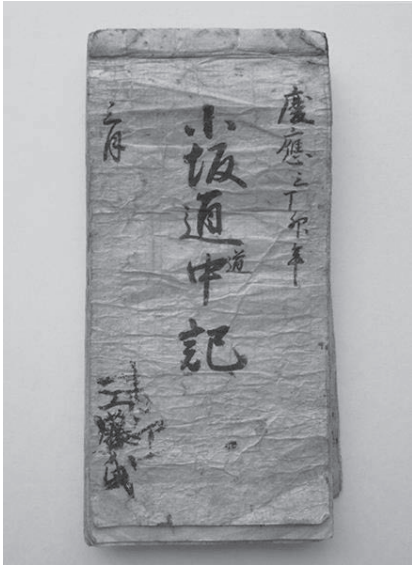 慶應三丁卯年
小坂通中記
道
三月
工藤氏